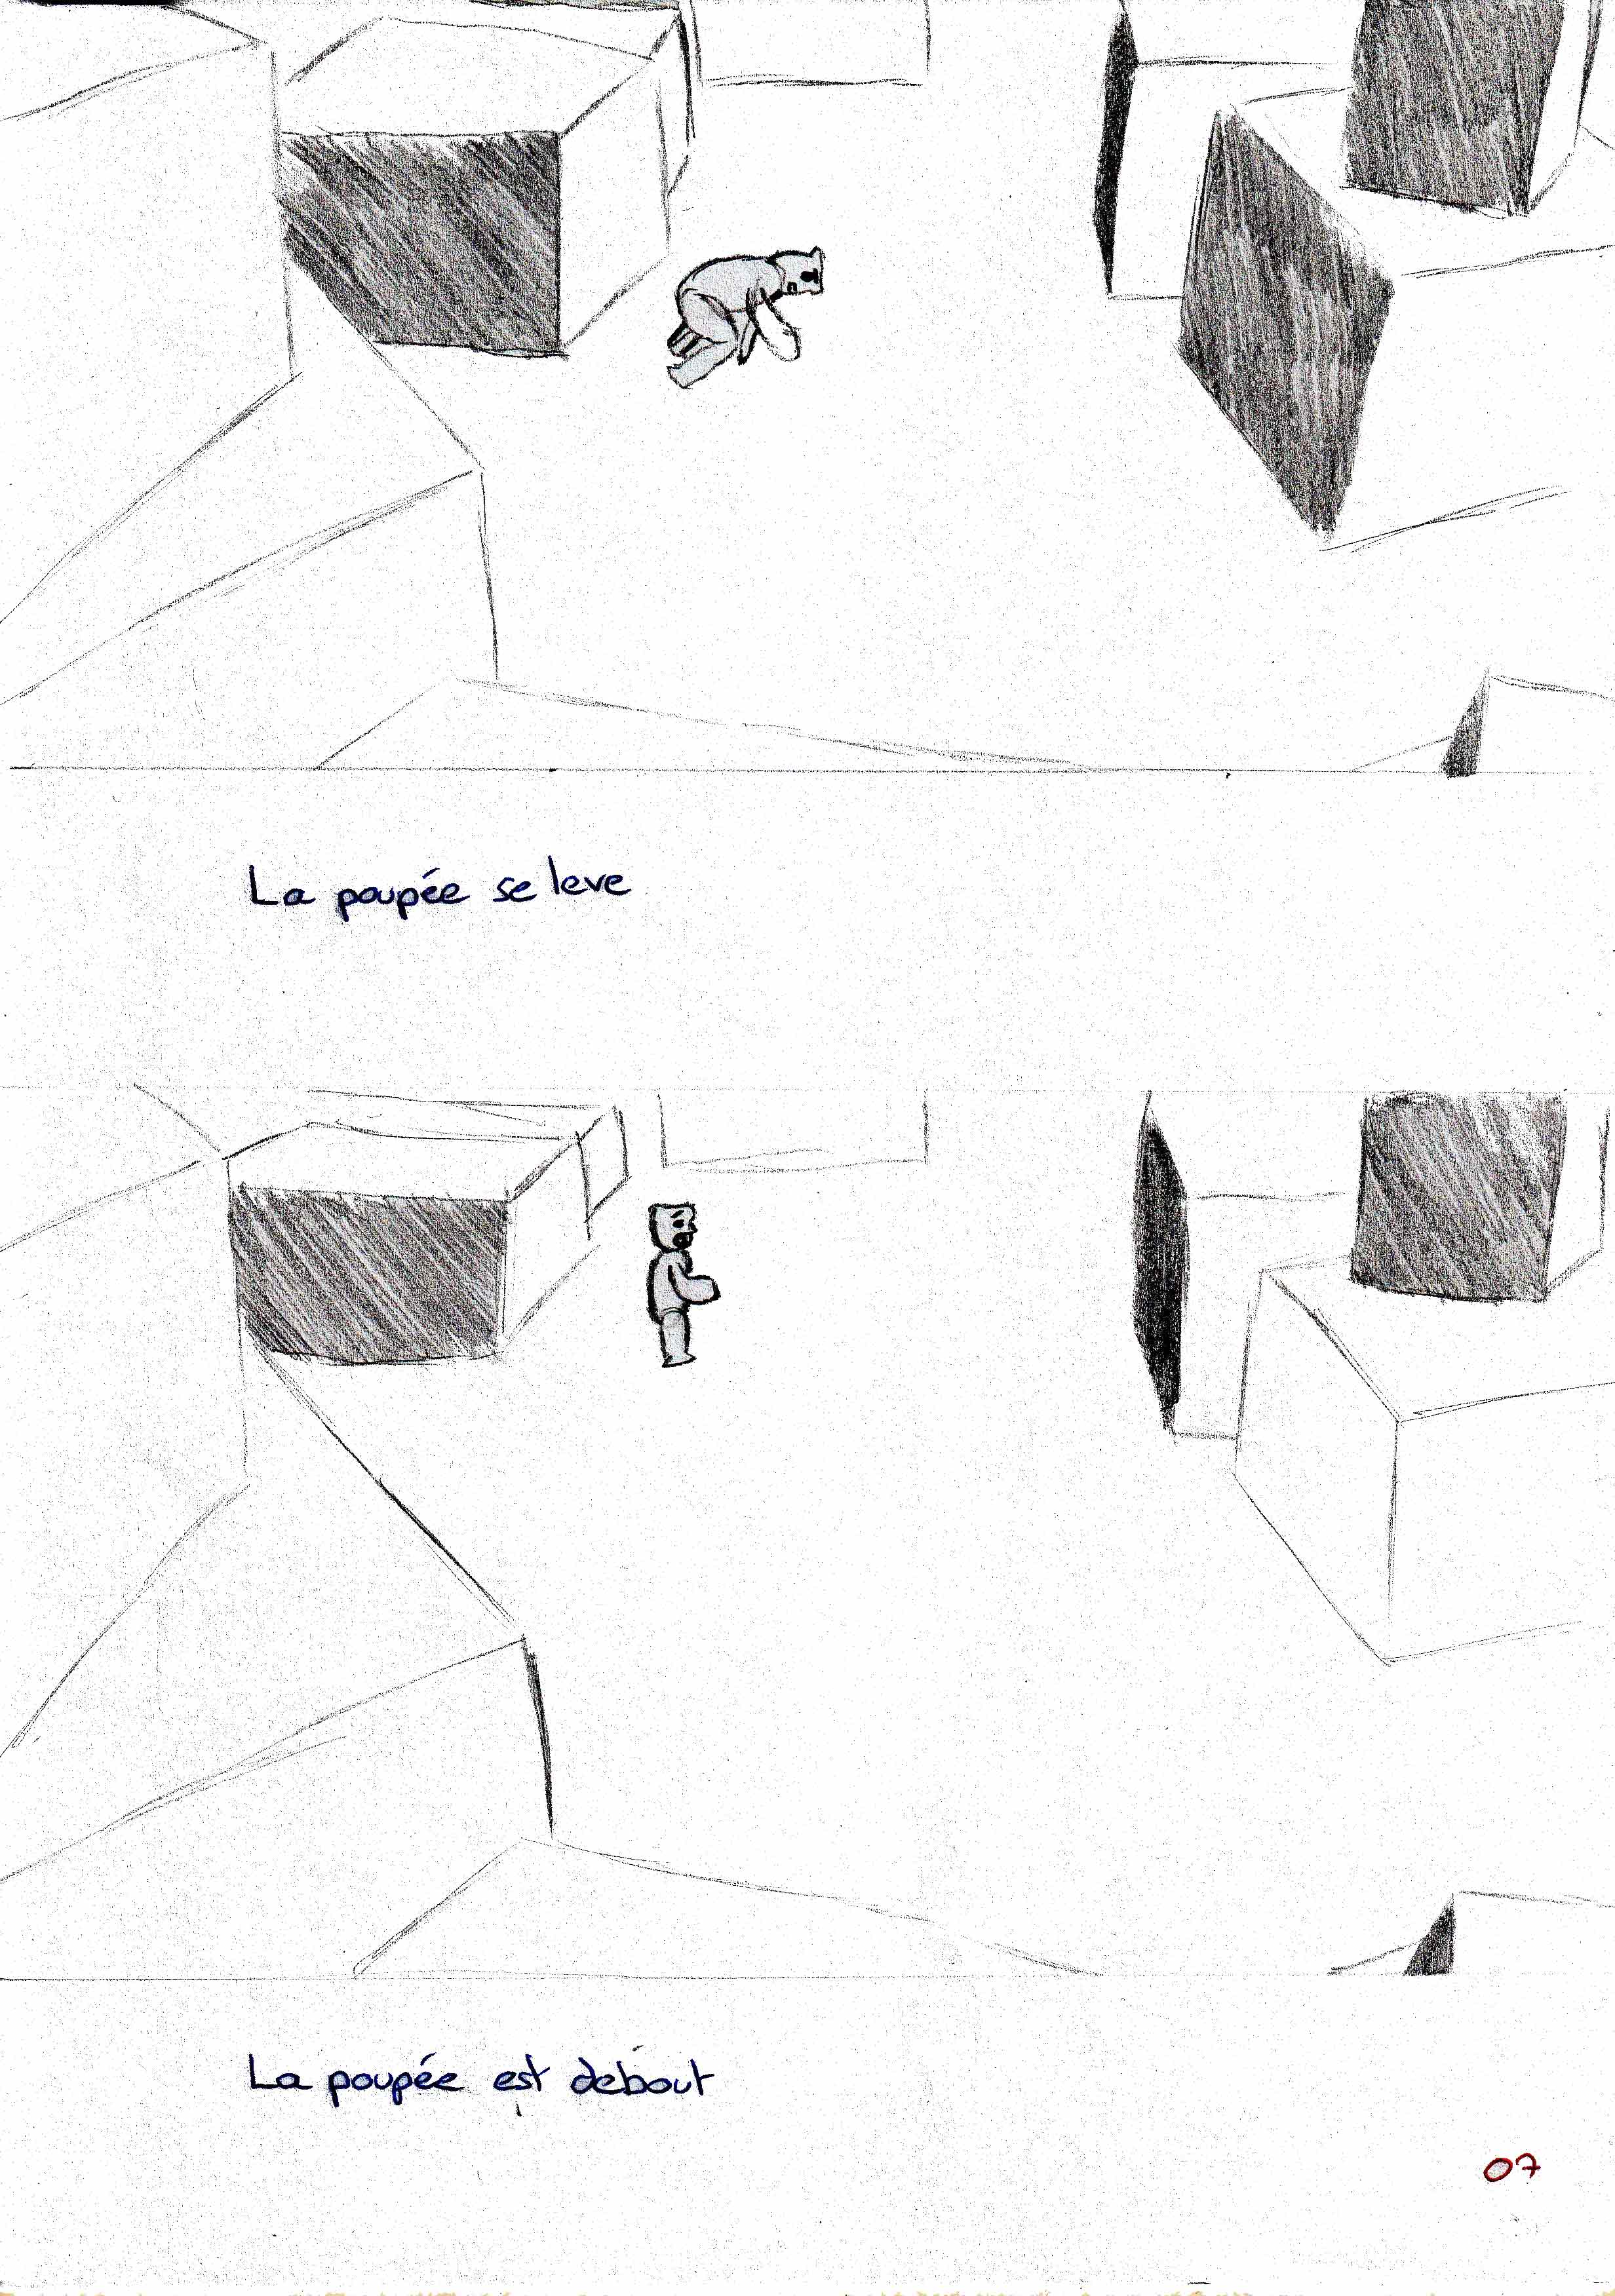 La poupée se leve
La poupée est debout
07